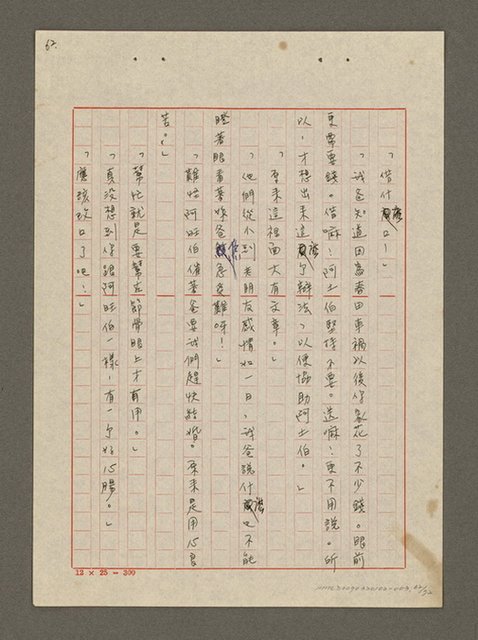 62.
「借什麼口!」
「我爸知道因富春田車禍以後你家花了不少錢。眼前
更需要錢。借嘛!阿土伯堅持不要。送嘛!更不用說。所
以,才想出來這麼個辦法,以便協助阿土伯。」
「原來這裡面大有文章。」
「他們從小到大朋友感情如一日,我爸說什麼也不能
瞪著眼看著妳爸爸為難呀!」
「難怪阿旺伯催著爸要我們趕快結婚。原來是用心良
苦。」
「幫忙就是要幫在節骨眼上才有用。」
「真沒想到你跟阿旺伯一樣,有一個好心腸。」
「應該改口了吧!」
12 × 25 = 300
62/92